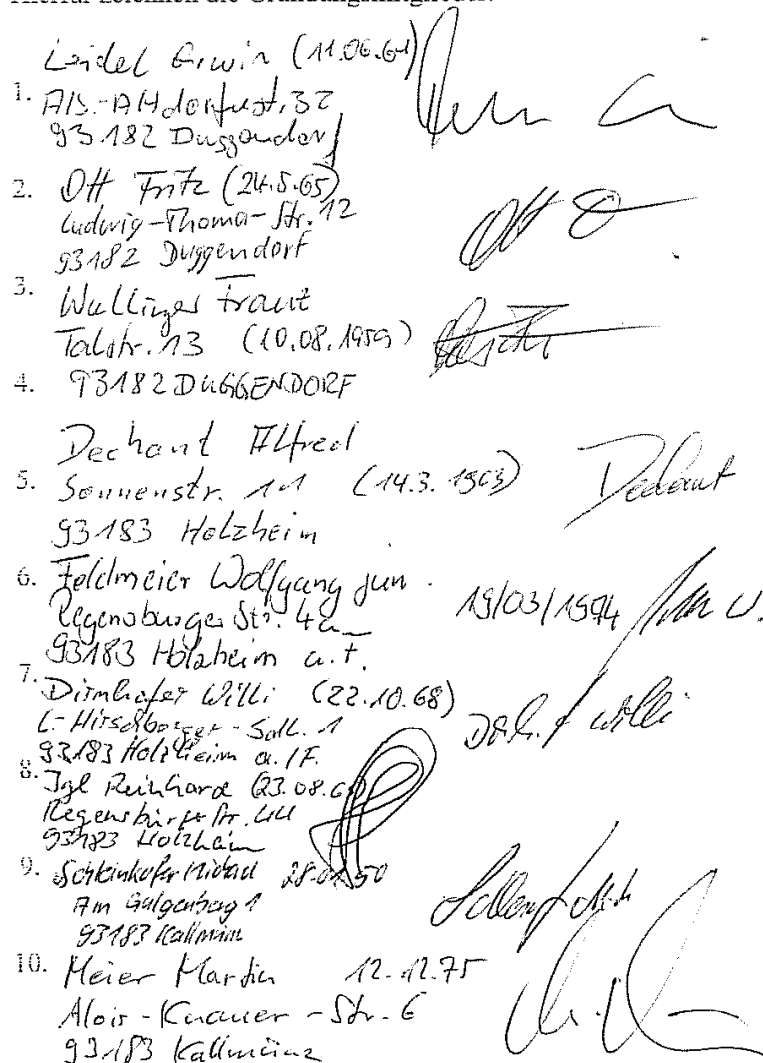 Hierfür zeichnen die Gründungsmitglieder:
Leidel Erwin (11.06.64)
1. Alb.-Altdorferstr. 32
93182 Duggendorf
2. Ott Fritz (24.5.65) Ott
Ludwig-Thoma-Str. 12
93182 Duggendorf
3. Wullinger Franz
Talstr. 13 (10.08.1959)
4. 93182 DUGGENDORF
Dechant Alfred
5. Sonnenstr. 11 (14.3.1963) Dechant
93183 Holzheim
6. Feldmeier Wolfgang jun. 19/03/1974
Regensburger Str. 4a
93183 Holzheim a.F.
7. Dirnhofer Willi (22.10.68) Willi
93183 Holzheim a./F.
8. Igl Reinhard (23.08.
Regensburger Str. 44
93183 Holzheim
9. 28.01.50
Am Galgenberg 1
93183
10. Meier Martin 12.12.75
Alois-Knauer-Str. 6
93183 Kallmünz